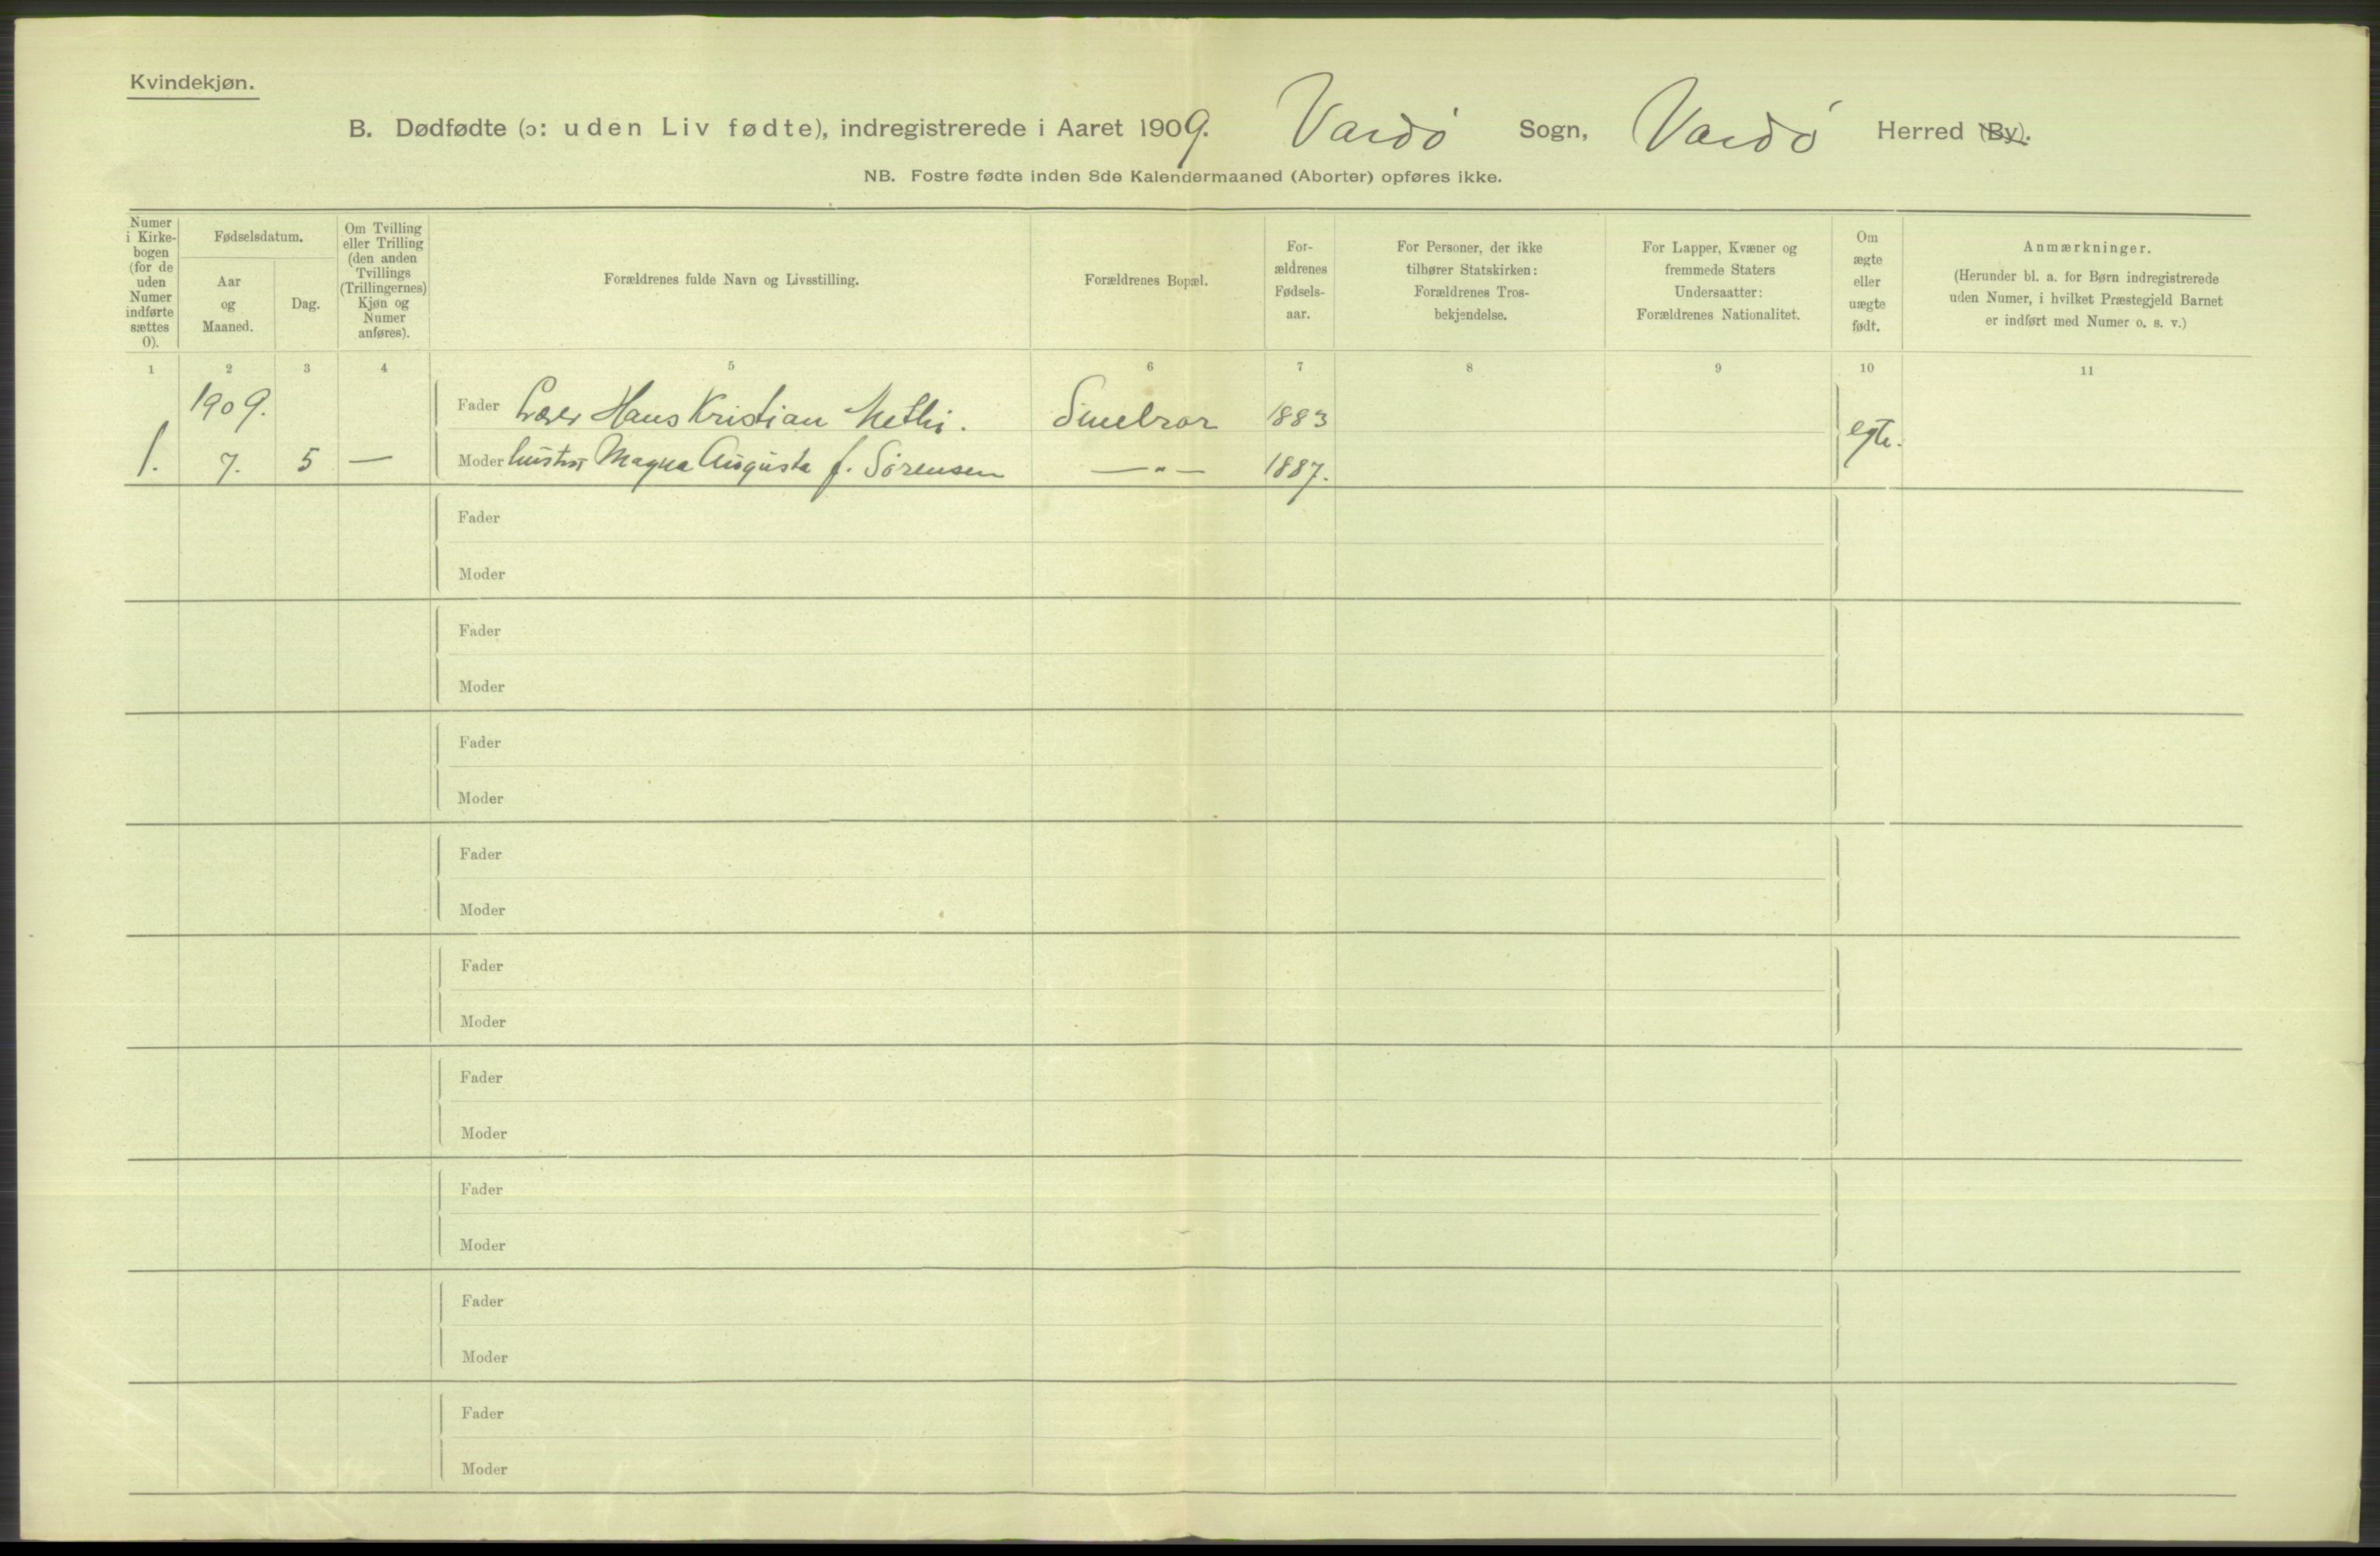 Kvindekjøn.
B. Dødfødte (ɔ: uden Liv fødte), indregistrerede i Aaret 1909. Vardø Sogn, Vardø Herred (By).
NB. Fostre fødte inden 8de Kalendermaaned (Aborter) opføres ikke.
Numer i Kirke-bogen (for de uden Numer indførte sættes 0).
Fødselsdatum.
Aar og Maaned.
Dag.
Om Tvilling eller Trilling (den anden Tvillings (Trillingernes) Kjøn og Numer anføres).
Forældrenes fulde Navn og Livsstilling.
Forældrenes Bopæl.
For-ældrenes Fødsels-aar.
For Personer, der ikke tilhører Statskirken: Forældrenes Tros-bekjendelse.
For Lapper, Kvæner og fremmede Staters Undersaatter: Forældrenes Nationalitet.
Om ægte eller uægte født.
Anmærkninger.
(Herunder bl. a. for Børn indregistrerede uden Numer, i hvilket Præstegjeld Barnet er indført med Numer o. s. v.)
1 2 3 4 5 6 7 8 9 10 11
1909. Fader Hans Kristian 1883
1. 7. 5 — Moder hustru Magna Augusta f. Sørensen —"— 1887. egte.
Fader
Moder
Fader
Moder
Fader
Moder
Fader
Moder
Fader
Moder
Fader
Moder
Fader
Moder
Fader
Moder
Fader
Moder